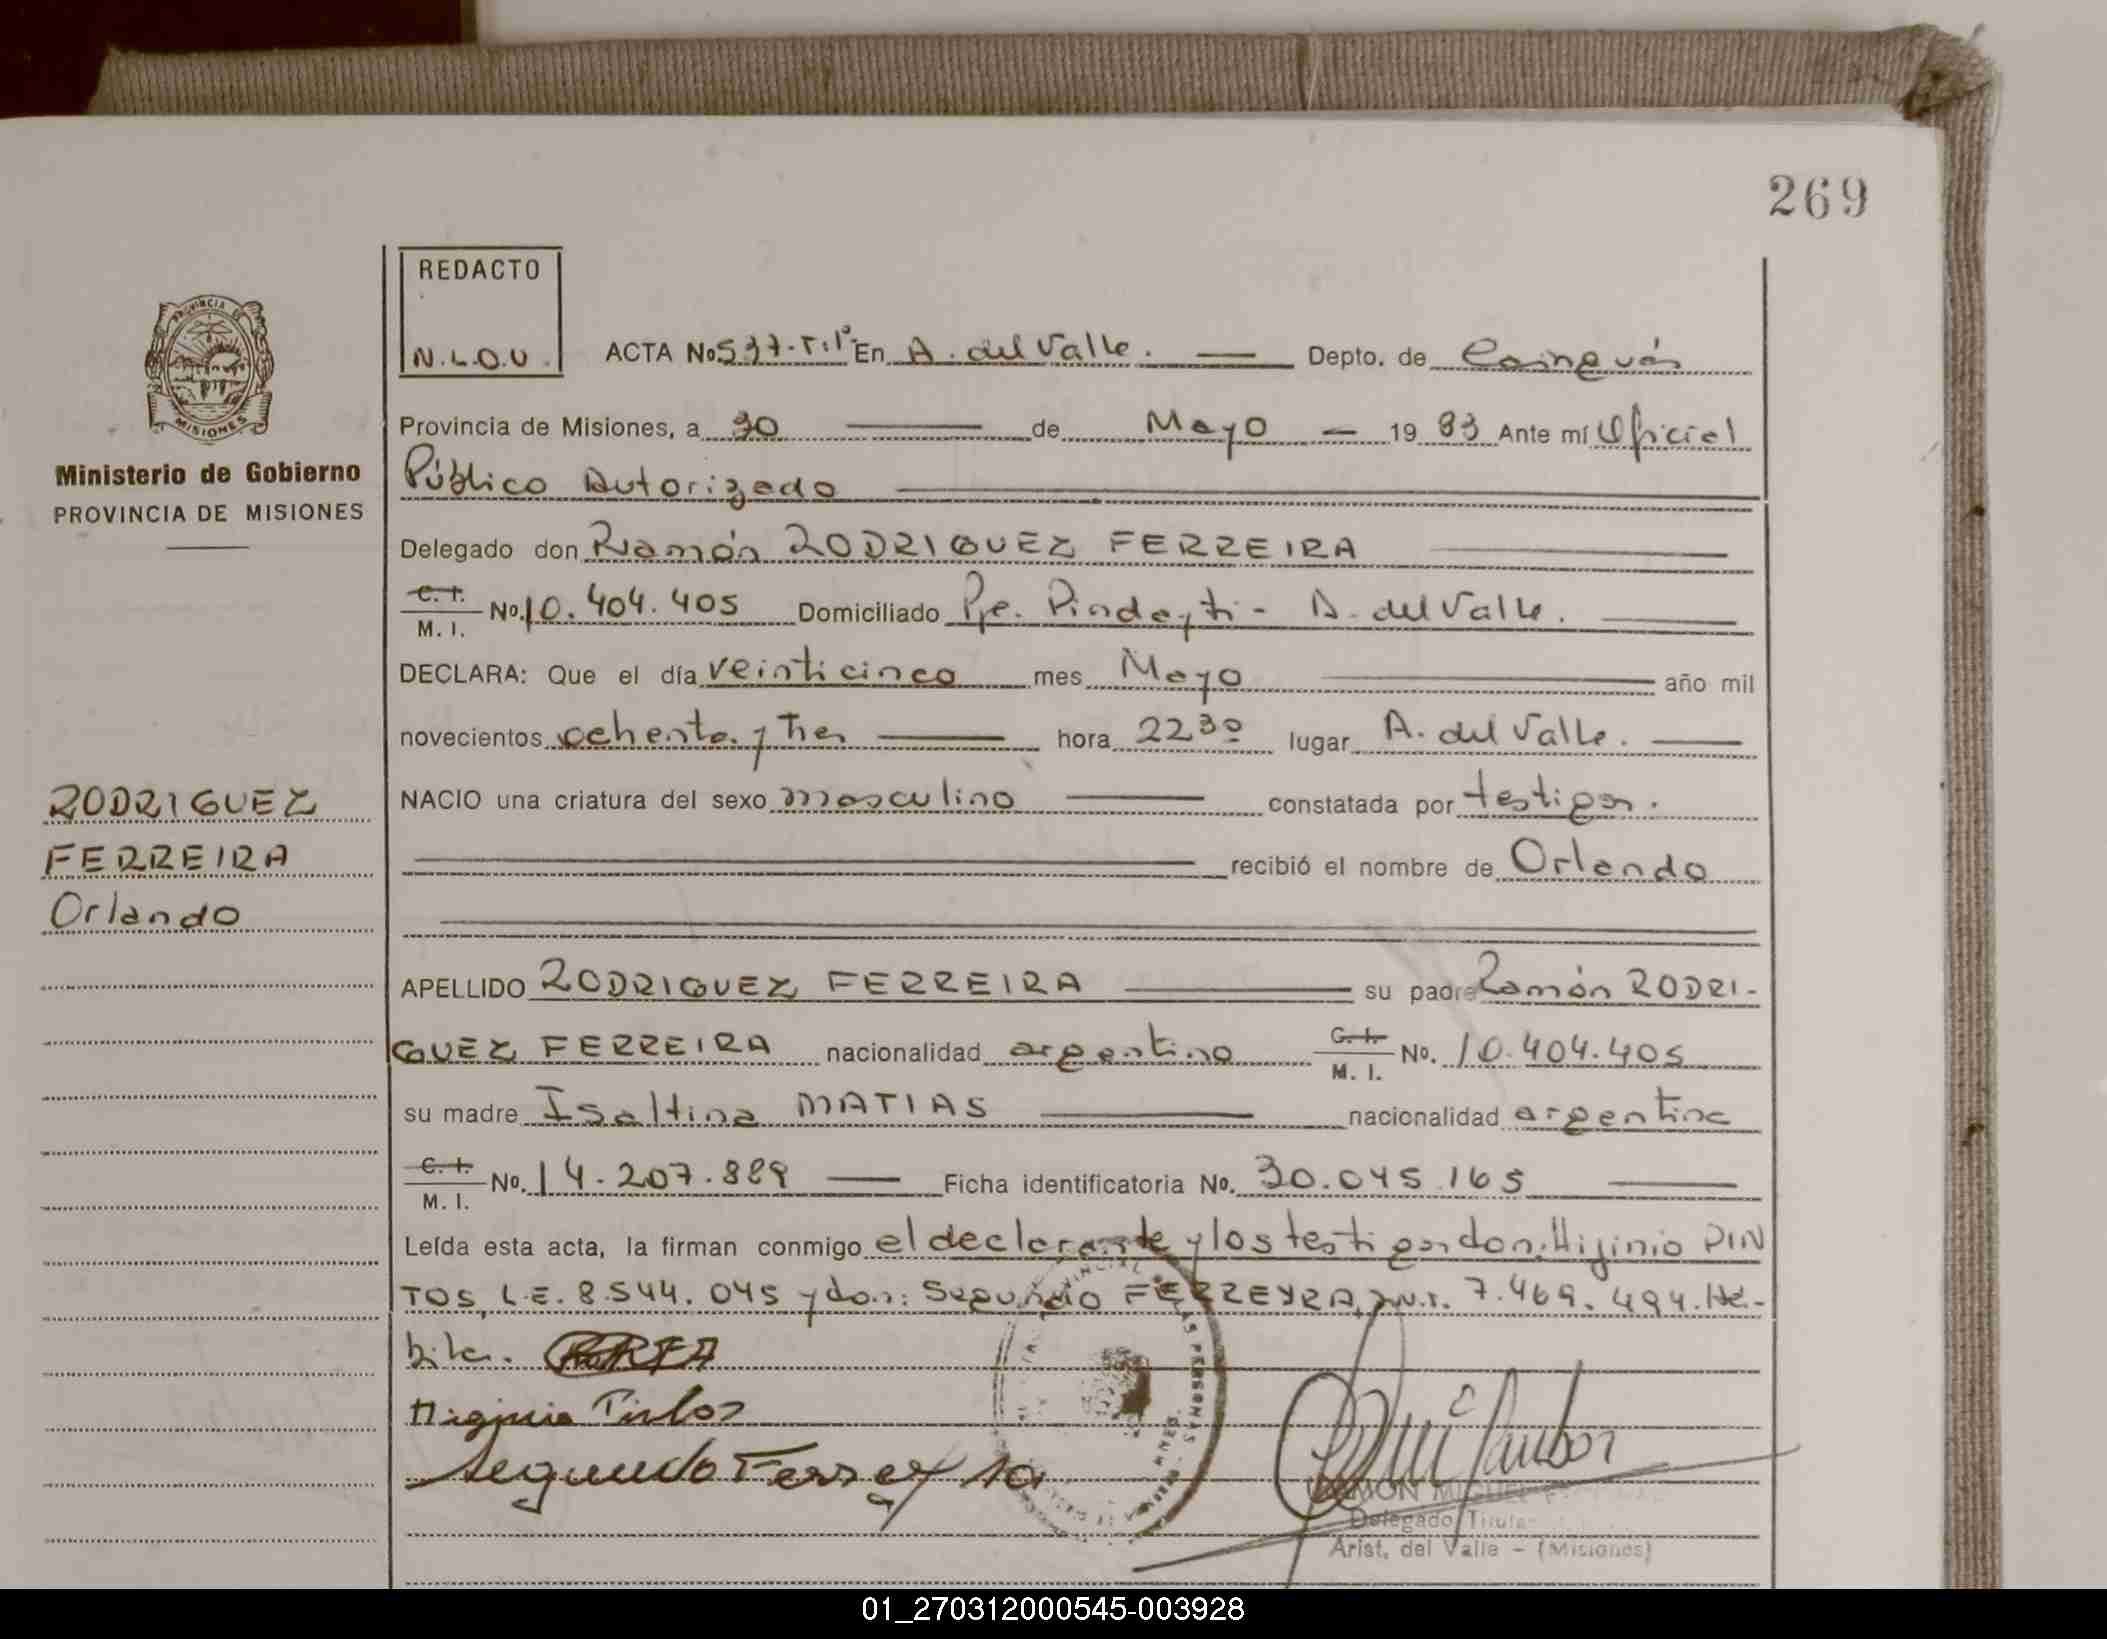 269
REDACTO
N.L.O.V.
ACTA No 537-T.1º En A. del Valle. Depto. de Cainguás
Provincia de Misiones, a 30 de Mayo 19 83 Ante mí Oficial
Público Autorizado
PROVINCIA DE
MISIONES
Ministerio de Gobierno
PROVINCIA DE MISIONES
Delegado don Ramón RODRIGUEZ FERREIRA
C. I.
M. I.
No. 10.404.405 Domiciliado Pje. Pindayti - A. del Valle.
DECLARA: Que el día veinticinco mes Mayo año mil
novecientos ochenta y tres hora 22³⁰ lugar A. del Valle.
NACIO una criatura del sexo masculino constatada por testigos.
recibió el nombre de Orlando
RODRIGUEZ
FERREIRA
Orlando
APELLIDO RODRIGUEZ FERREIRA su padre Ramón RODRI-
GUEZ FERREIRA nacionalidad argentino C. I. M. I. No. 10.404.405
su madre Isaltina MATIAS nacionalidad argentina
C. I.
M. I.
No. 14.207.889 Ficha identificatoria No. 30.045.165
Leída esta acta, la firman conmigo el declarante y los testigos don: Higinio PIN
TOS, L.E. 8.544.045 y don: Segundo FERREYRA, M.I. 7.469.494. Há-
biles.
Higinio Pintos
Segundo Ferreyra
RAMON MIGUEL
Delegado Titular
Arist. del Valle - (Misiones)
01_270312000545-003928